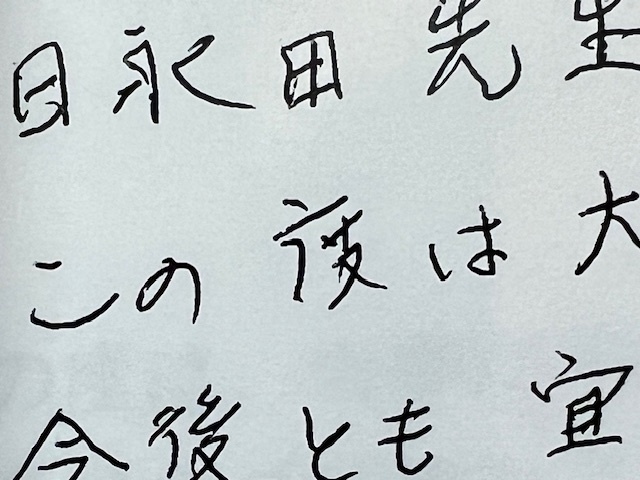 日永田先生
この度は大
今後とも宜